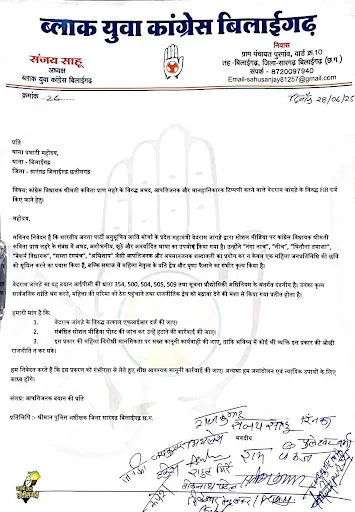 ब्लाक युवा कांग्रेस बिलाईगढ़
संजय साहू
अध्यक्ष
ब्लाक युवा कांग्रेस बिलाईगढ़
निवास
ग्राम पंचायत पुरगांव, वार्ड क्र.10
तह-बिलाईगढ़, जिला-सारंगढ़ बिलाईगढ़ (छ.ग.)
संपर्क - 8720097940
Email-sahusanjay81257@gmail.com
क्रमांक - 26
दिनाँक 28/06/25
प्रति
थाना प्रभारी महोदय,
थाना - बिलाईगढ़
जिला - सारंगढ़ बिलाईगढ़ छत्तीसगढ़
विषय: कांग्रेस विधायक श्रीमती कविता प्राण लहरे के विरुद्ध अभद्र, आपत्तिजनक और मानहानिकारक टिप्पणी करने वाले वेदराम जांगड़े के विरुद्ध FIR दर्ज
किए जाने हेतु।
महोदय,
सविनय निवेदन है कि भारतीय जनता पार्टी अनुसूचित जाति मोर्चा के प्रदेश महामंत्री वेदराम जांगड़े द्वारा सोशल मीडिया पर कांग्रेस विधायक श्रीमती
कविता प्राण लहरे के संबंध में अभद्र, अशोभनीय, झूठे और अमर्यादित भाषा का उपयोग किया गया है। उन्होंने "नंगा नाच", "नीच", "घिनौना तमाशा",
"बेशर्म विधायक", "अभिशाप" जैसी आपत्तिजनक और अपमानजनक शब्दावली का प्रयोग कर न केवल एक महिला जनप्रतिनिधि की छवि
को धूमिल करने का प्रयास किया है, बल्कि समाज में महिला नेतृत्व के प्रति द्वेष और घृणा फैलाने का गंभीर कृत्य किया है।
वेदराम जांगड़े का यह बयान आईपीसी की धारा 354, 500, 504, 505, 509 तथा सूचना प्रौद्योगिकी अधिनियम के अंतर्गत दंडनीय है। उनका कृत्य
सार्वजनिक शांति भंग करने, महिला की गरिमा को ठेस पहुंचाने तथा राजनीतिक द्वेष को बढ़ावा देने की मंशा से किया गया प्रतीत होता है।
हमारी मांग है कि:
1. वेदराम जांगड़े के विरुद्ध तत्काल एफआईआर दर्ज की जाए।
2. संबंधित सोशल मीडिया पोस्ट की जांच कर उन्हें हटाने की कार्रवाई की जाए।
3. इस प्रकार की महिला विरोधी मानसिकता पर सख्त कानूनी कार्यवाही की जाए, ताकि भविष्य में कोई भी व्यक्ति इस प्रकार की ओछी
राजनीति न कर सके।
हम निवेदन करते हैं कि इस प्रकरण को गंभीरता से लेते हुए शीघ्र आवश्यक कानूनी कार्रवाई की जाए। अन्यथा हम जनआंदोलन एवं न्यायिक उपायों के लिए
बाध्य होंगे।
संलग्न: आपत्तिजनक बयान की प्रति
प्रतिलिपि :- श्रीमान पुलिस अधीक्षक जिला सारंगढ़ बिलाईगढ़ छ.ग.
भवदीय
संजय साहू